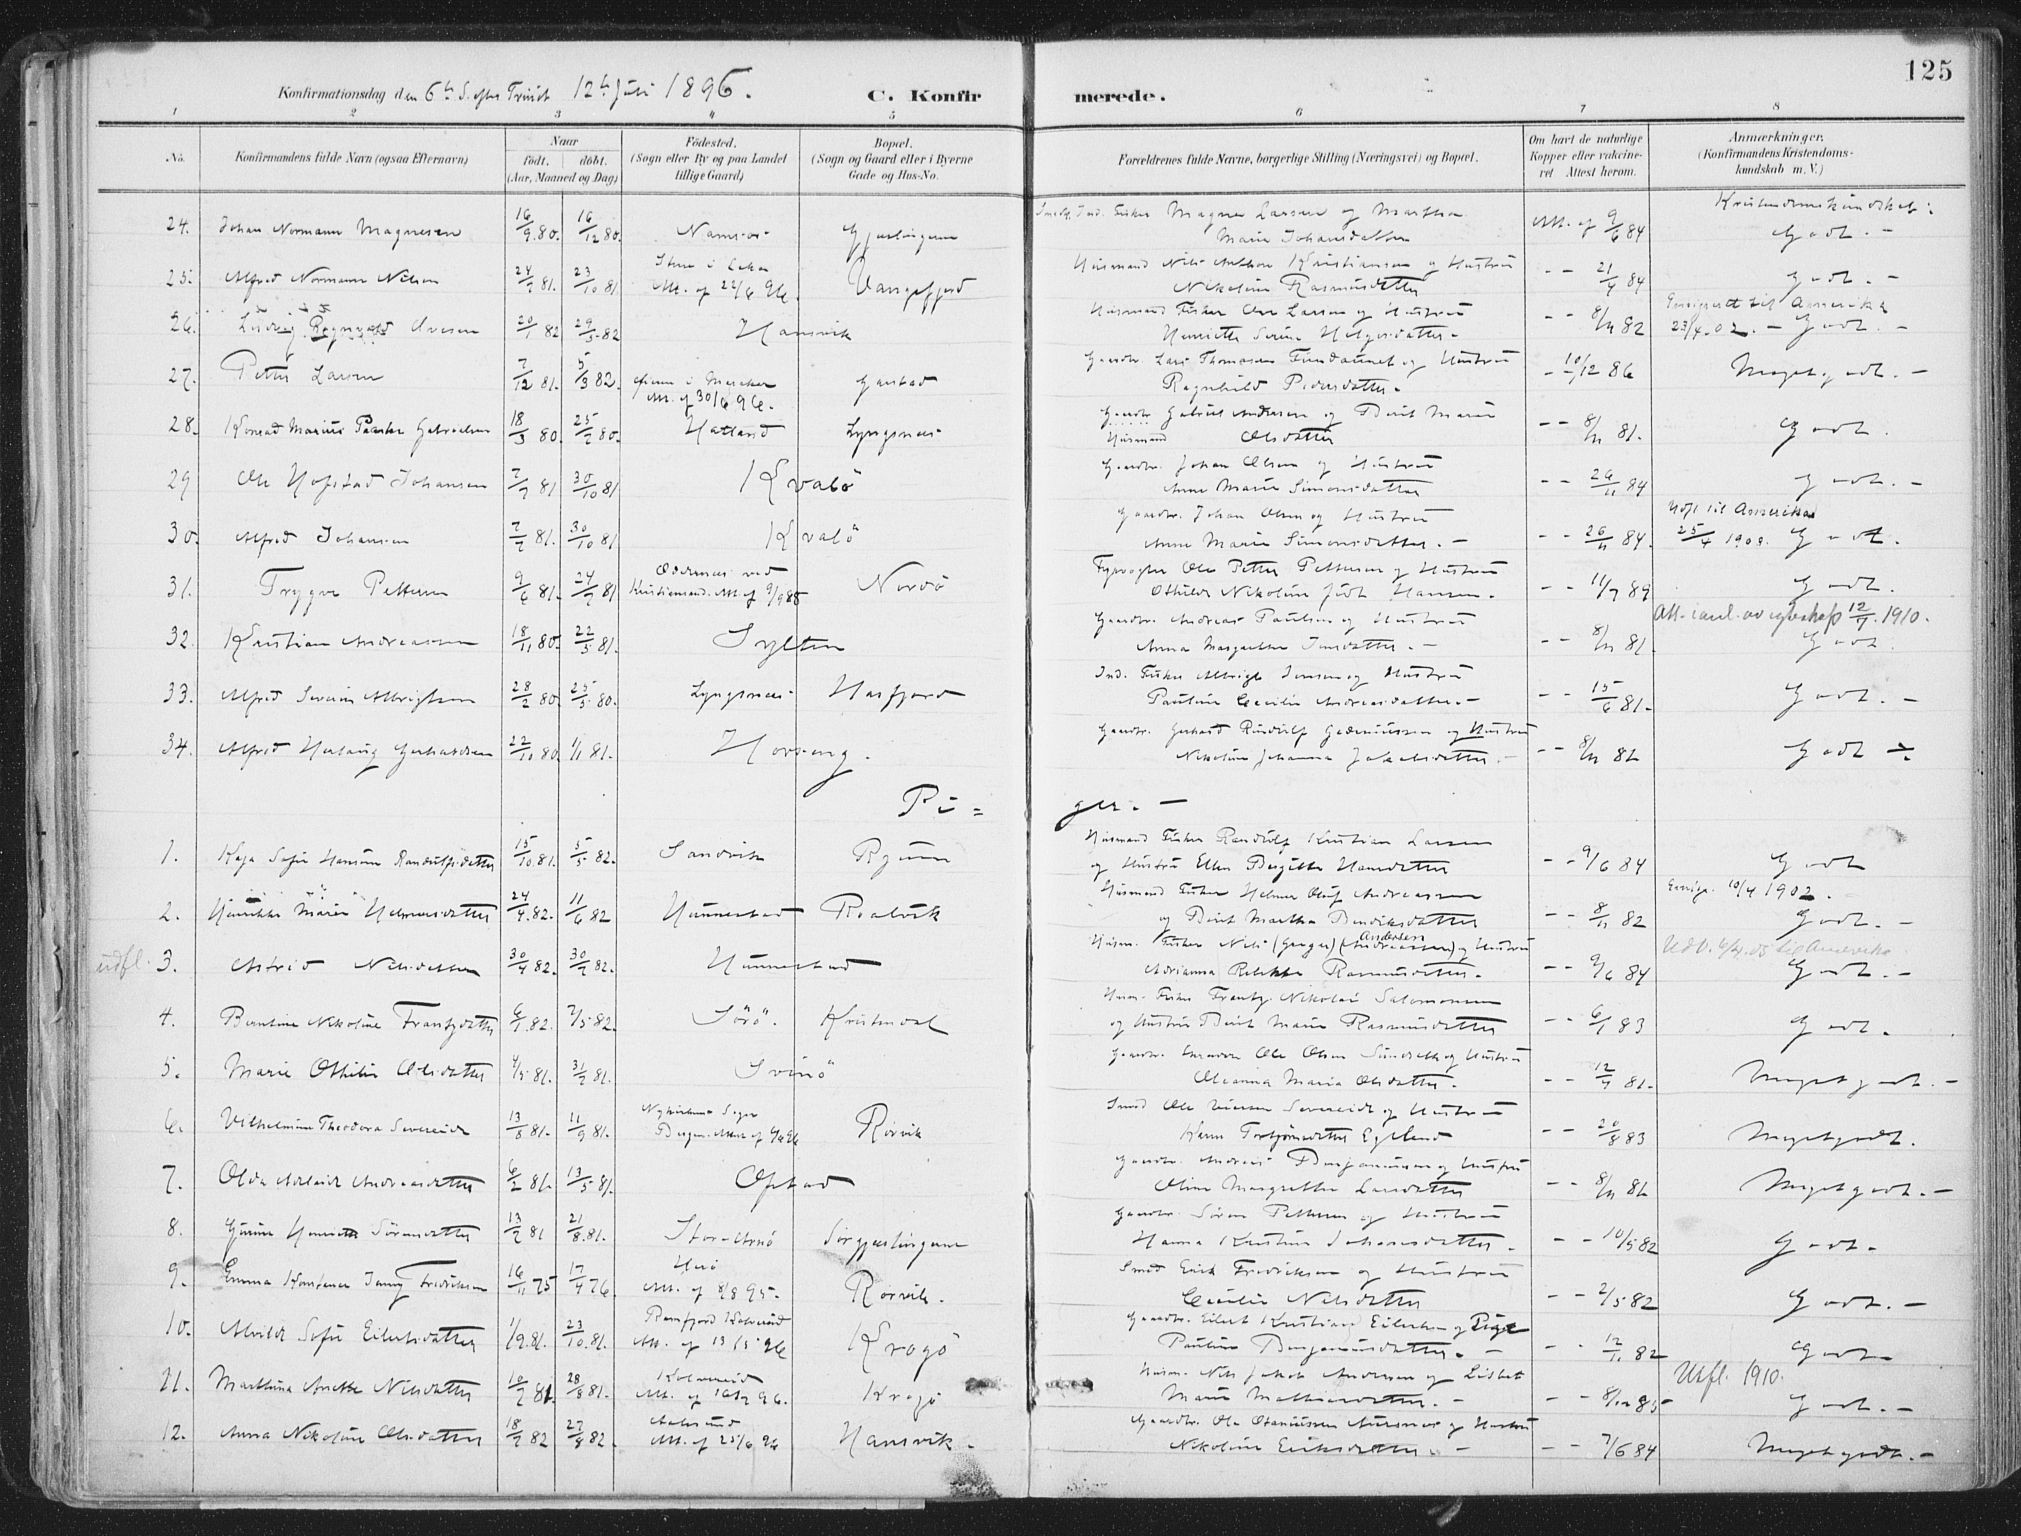 125
Konfirmationsdag den 6te S. efter Trinit 12te Juli 1896. C. Konfirmerede.
1 2 3 4 5 6 7 8
No. Konfirmandens fulde Navn (ogsaa Efternavn) Naar født. døbt. (Aar, Maaned og Dag) Fødested. (Sogn eller By og paa Landet tillige Gaard) Bopæl. (Sogn og Gaard eller i Byerne Gade og Hus-No. Forældrenes fulde Navne, borgerlige Stilling (Næringsvei) og Bopæl. Om havt de naturlige Kopper eller vakcineret Attest herom. Anmærkninger. (Konfirmandens Kristendomskundskab m. V.)
Kristendomskundskab:
24. Johan Normann Magnesen 16/9 80. 16/12 80. Namsos Gjæslingerne Ind. Fisker Magnus Larsen og Martha Marie Johansdatter Att. af 9/6 84 Godt. -
25. Alfred Normann Nilsen 24/7 81. 23/10 81 i Leka Att. af 22/6 96. Vangsfjord Husmand Nils Anton Kristiansen og Hustru Nikoline Rasmusdatter - - 21/9 84 Godt. -
26. Ludvig Ragnvald Ovesen 20/1 82 29/5 82 Hansvik Husmand Fisker Ove Larsen og Hustru Henriette Serine Holgersdatter - - - 8/11 82 til Amerika 23/4.02. - Godt. -
27. Petter Larsen 7/12 81. 5/3 82. i Meraker Att. af 30/6 96. Garstad Gaardbr. Lars Thomassen og Hustru Ragnhild Pedersdatter - - - 10/12 86 Meget godt. -
28. Konrad Marius Gabrielsen 18/3 80. 25/7 80. Hatland Lyngsnes Gaardbr. Husmand Gabriel Andersen og Berit Marie Olsdatter - - 8/11 81. Godt.
29 Ole Hofstad Johansen 7/7 81 30/10 81 Kvalö Gaardbr. Johan Olsen og Hustru Anne Marie Simonsdatter - - 26/11 84 Godt. -
30. Alfred Johansen 7/7 81. 30/10 81 Kvalö Gaardbr. Johan Olsen og Hustru Anne Marie Simonsdatter. - - - 26/11 84. Udfl til Amerika 25/4 1903. Godt.
31. Trygve Pettersen 9/6 81. 24/7 81 Oddernes ved Kristiansand. Att. af 9/9 85 Nordö Fyrvogter Ole Petter Pettersen og Hustru Othilde Nikoline Hansen. - - 11/7 89 Godt.
32. Kristian Andreassen 18/11 80. 22/5 81. Sylten Gaardbr. Andreas Paulsen og Hustru Anna Margrethe Jensdatter. - - - 8/11 81. Att. i anl. av egteskap 12/7. 1910. Godt.
33. Alfred Severin Albrigtsen 28/2 80. 25/5 80. Lyngsnes Hasfjord Ind. Fisker Albrigt Jensen og Hustru Pauline Cecilie Andreasdatter. - - - 15/6 81. Godt. -
34. Alfred Herlaug Gerhardsen 22/10 80. 1/1 81. Horseng. Gaardbr. Gerhard Rindulf og Hustru Nikoline Johanna Jakobsdatter. - - - 8/11 82 Godt -
Piger. -
1. Kaja Sofie Hansine Randulfsdatter 15/10 81. 5/5 82. Sandvik Ryum Husmand Fisker Randulf Kristian Larsen og Hustru Ellen Birgitte Hansdatter - - 9/6 84 Godt
2. Henrikke Marie Helmersdatter 24/4 82. 11/6 82 Hunnestad Roalvik Husmand Fisker Helmer Oluf Andreassen og Berit Martha Bendiksdatter - - 8/11 82 10/4 1902. Godt. -
udfl. 3. Astrid Nilsdatter 30/4 82. 30/7 82. Hunnestad Husm. Fisker Nils (Andreassen) Andersen og Hustru Adrianna Rebekka Rasmusdatter. - - - 9/6 84 til Amerika Godt. -
4. Berntine Nikoline Frantzdatter 6/1 82. 7/5 82. Sörö. Kristendal Husm. Fisker Frantz Nikolai Salomonsen og Hustru Berit Marie Rasmusdatter - - 6/1 83 Godt.
5. Marie Othilie Olsdatter 4/5 81. 31/7 81. Svinö Gaardbr. Ole Olsen og Hustru Oleanna Maria Olsdatter. - - 12/7 81. Meget godt. -
6. Vilhelmine Theodora Severeide 13/8 81. 11/9 81. Nykirkens Sogn Bergen. Rørvik Smed Ole Severeide og Hustru Karen Torbjørnsdatter Egeland - - 20/8 83 Meget godt.
7. Olda Adelaide Andreasdatter 6/2 81. 13/5 81. Opstad Gaardbr. Andreas Benjaminsen og Hustru Oline Margrethe Larsdatter - - 8/11 82 Meget godt. -
8. Gurine Henriette Sörensdatter 13/2 81 21/8 81. Stor-Arnö Sörgjæslingerne Gaardbr. Sören Pettersen og Hustru Hanna Kristine Johansdatter. - - 10/5 82 Godt.
9. Emma Jenny Fredriksen 16/11 75 17/4 76. Herö Att. af 8/8 95. Rørvik. Smed Erik Fredriksen og Hustru Cecilie Nilsdatter - - 2/5 82 Godt. -
10. Alvilde Sofie Eilertsdatter 1/9 81. 23/10 81. Kolvereid Att. af 13/5 96 Krogö Gaardbr. Eilert Kristian Eilertsen og Pige Pauline Benjaminsdatter. - - - 12/11 82 Godt
11. Marthina Anette Nilsdatter 10/7 81. 28/8 81. Kolvereid Krogö Husm. Nils Jakob Andersen og Lisbet Marie Mathiasdatter. - - - 8/12 85 Udfl. 1910. Godt. -
12. Anna Nikoline Olsdatter 18/7 82 27/8 82. Aalesund Att. af 25/6 96 Hansvik. Gaardbr. Ole og Hustru Nikoline Eriksdatter. - - - 7/6 84 Meget godt. -